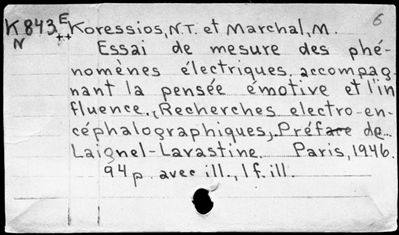 K 843 E Koressios, N.T. et Marchal, M. 6
N ++
Essai de mesure des phé-
nomènes électriques accompag-
nant la pensée émotive et l'in
fluence. Recherches electro-en-
céphalographiques, Préface de
Laignel-Lavastine Paris, 1946.
94 p. avec ill., 1 f. ill.